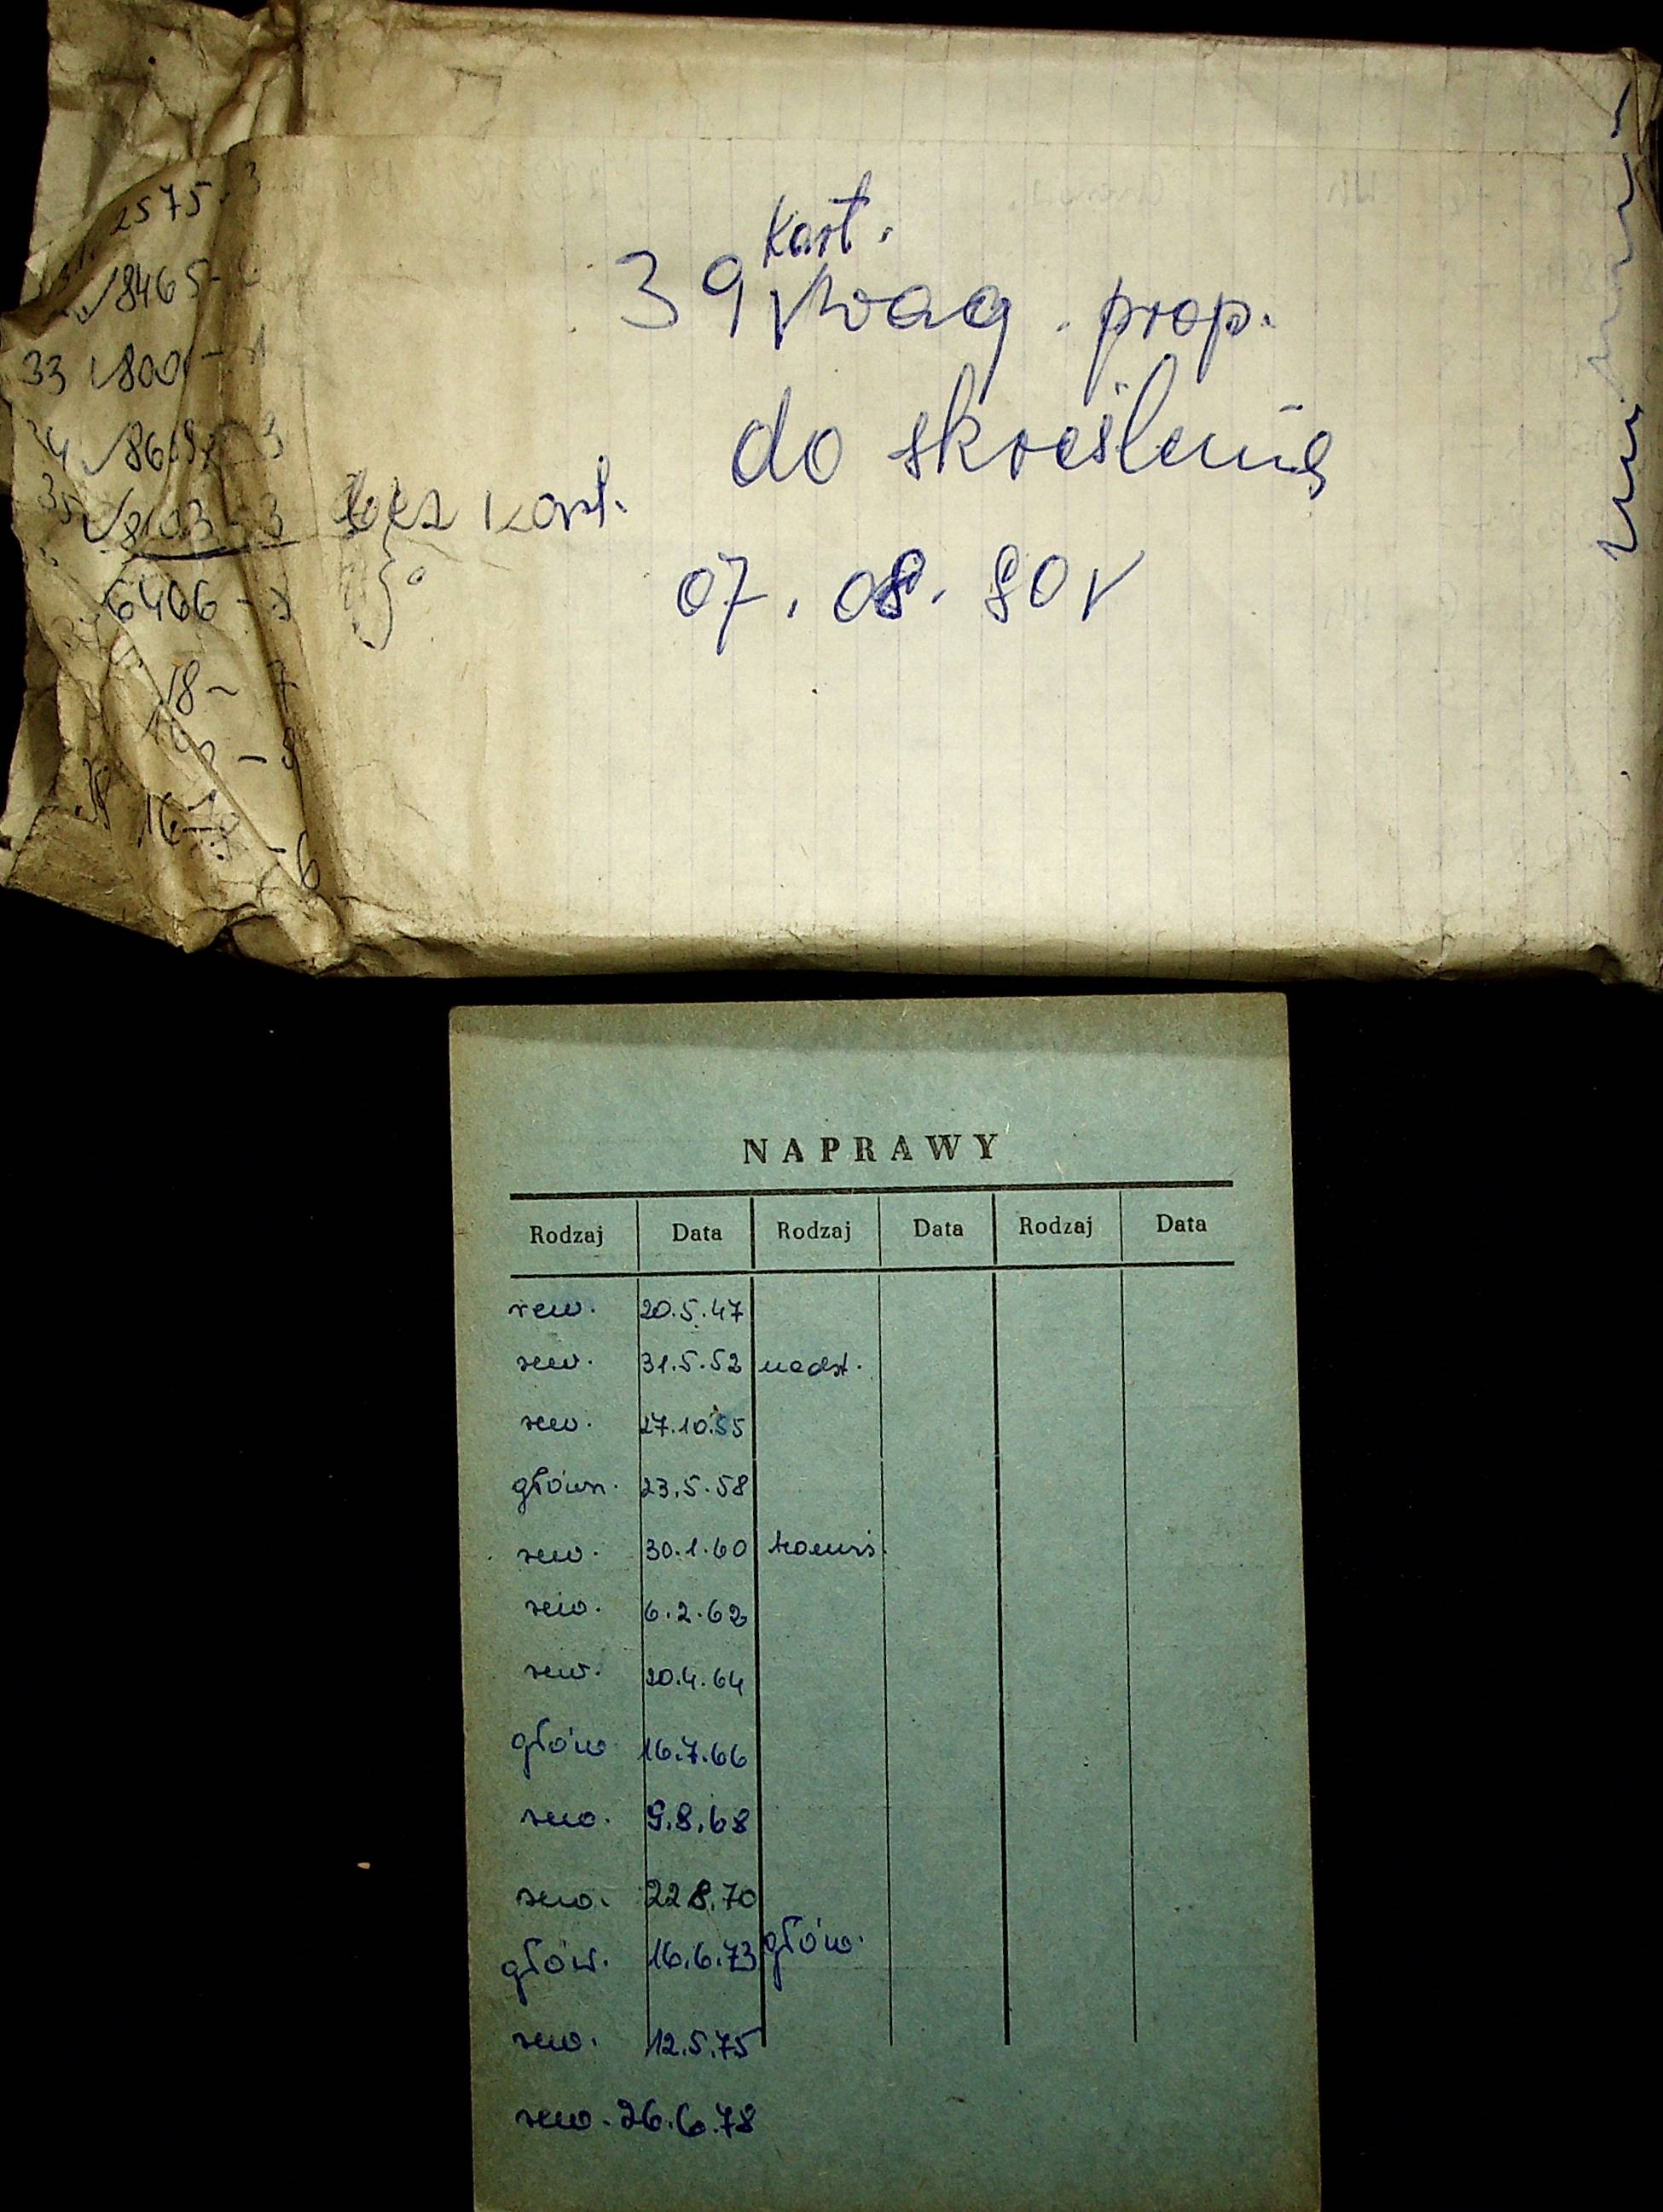 2575-3
8465-
33 800 -
34 86
35 8103-3
6406 -
18 - 7
- 3
16
- 6
bez kart.
kart.
39 wag. prop.
do skreślenia
07.08.80r
NAPRAWY
Rodzaj Data Rodzaj Data Rodzaj Data
rew. 20.5.47
rew. 31.5.52 nadst.
rew. 27.10.55
główn. 23.5.58
rew. 30.1.60
rew. 6.2.62
rew. 20.4.64
głów 16.7.66
rew. 9.8.68
rew. 22 8.70
głów. 16.6.73 głów.
rew. 12.5.75
rew. 26.6.78